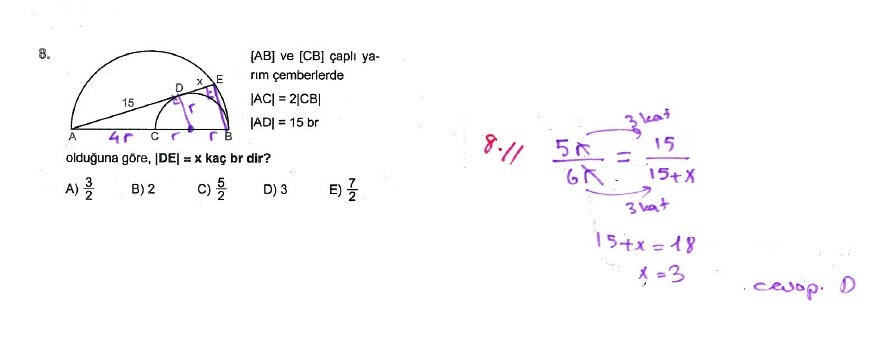 8.
[AB] ve [CB] çaplı ya-
rım çemberlerde
|AC| = 2|CB|
|AD| = 15 br
15
D
x
E
r
A
4r
C
r
r
B
olduğuna göre, |DE| = x kaç br dir?
A) 3/2 B) 2 C) 5/2 D) 3 E) 7/2
8.//
3 kat
5r/6r = 15/15+x
3 kat
15+x = 18
x = 3
cevap. D